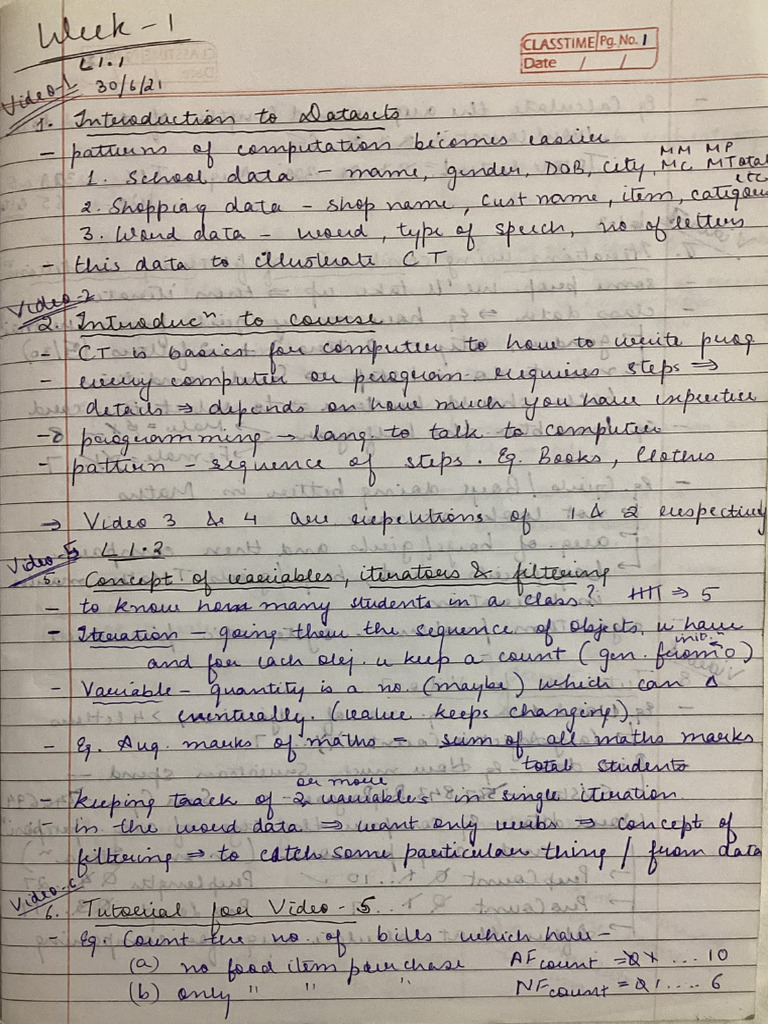 Week - 1
CLASSTIME Pg. No. 1
Date / /
L1.1
Video-1 30/6/21
1. Introduction to Datasets
- patterns of computation becomes easier
1. School data - name, gender, DOB, city, MM MP MC MTotal etc
2. Shopping data - shop name, cust name, item, category
3. Word data - word, type of speech, no of letters
- this data to illustrate CT
Video-2
2. Introducⁿ to course
- CT is basics for computer to how to write prog
- every computer or program requires steps ⇒
details ⇒ depends on how much you have expertise
- programming → lang. to talk to computer
- pattern - sequence of steps. Eg. Books, Clothes
→ Video 3 & 4 are repetitions of 1 & 2 respectively
Video-5 L1.2
5. Concept of variables, iterators & filtering
- to know how many students in a class? ⇒ 5
- Iteration - going thru the sequence of objects u have
and for each obj. u keep a count (gen. from init. 0)
- Variable - quantity is a no. (maybe) which can Δ
eventually. (value keeps changing)
- Eg. Avg. marks of maths = sum of all maths marks
total students
- keeping track of 2 or more variables in single iteration
- in the word data ⇒ want only verbs ⇒ concept of
filtering ⇒ to catch some particular thing / from data
Video-6
6. Tutorial for Video - 5
- Eg. Count the no. of bills which have -
(a) no food item purchase AFcount = 0 1 ... 10
(b) only " " " NFcount = 0 1 .... 6